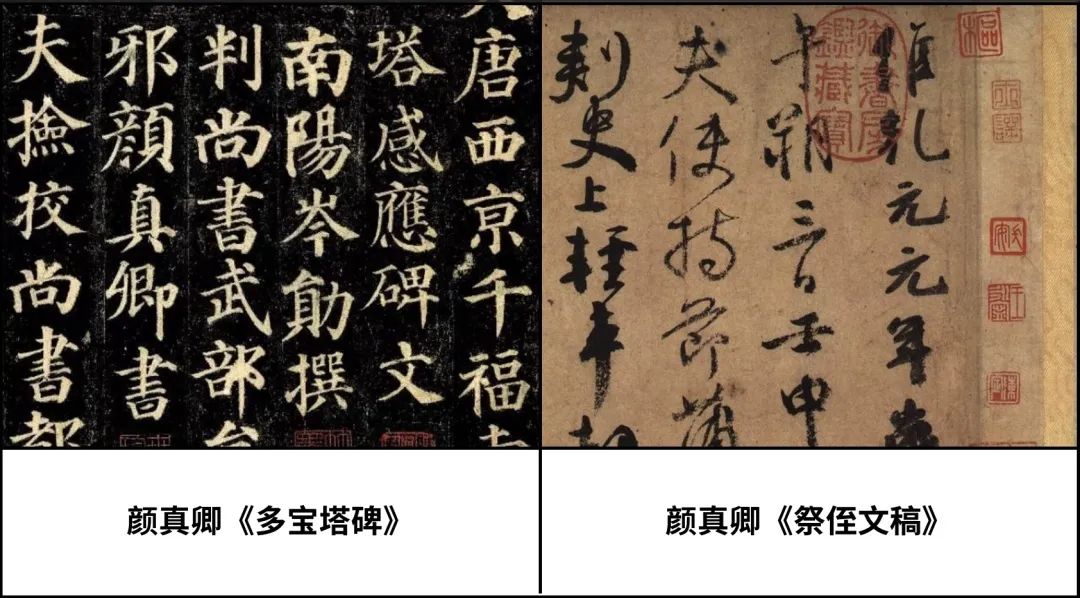 唐西亰千福
塔感應碑文
南陽岑勛撰
判尚書武部
邪顏真卿書
夫撿挍尚書都
維乾元元年歲
午朔三日壬申
夫使持節蒲
刺史上輕車都
御書房鑒藏寶
颜真卿《多宝塔碑》
颜真卿《祭侄文稿》